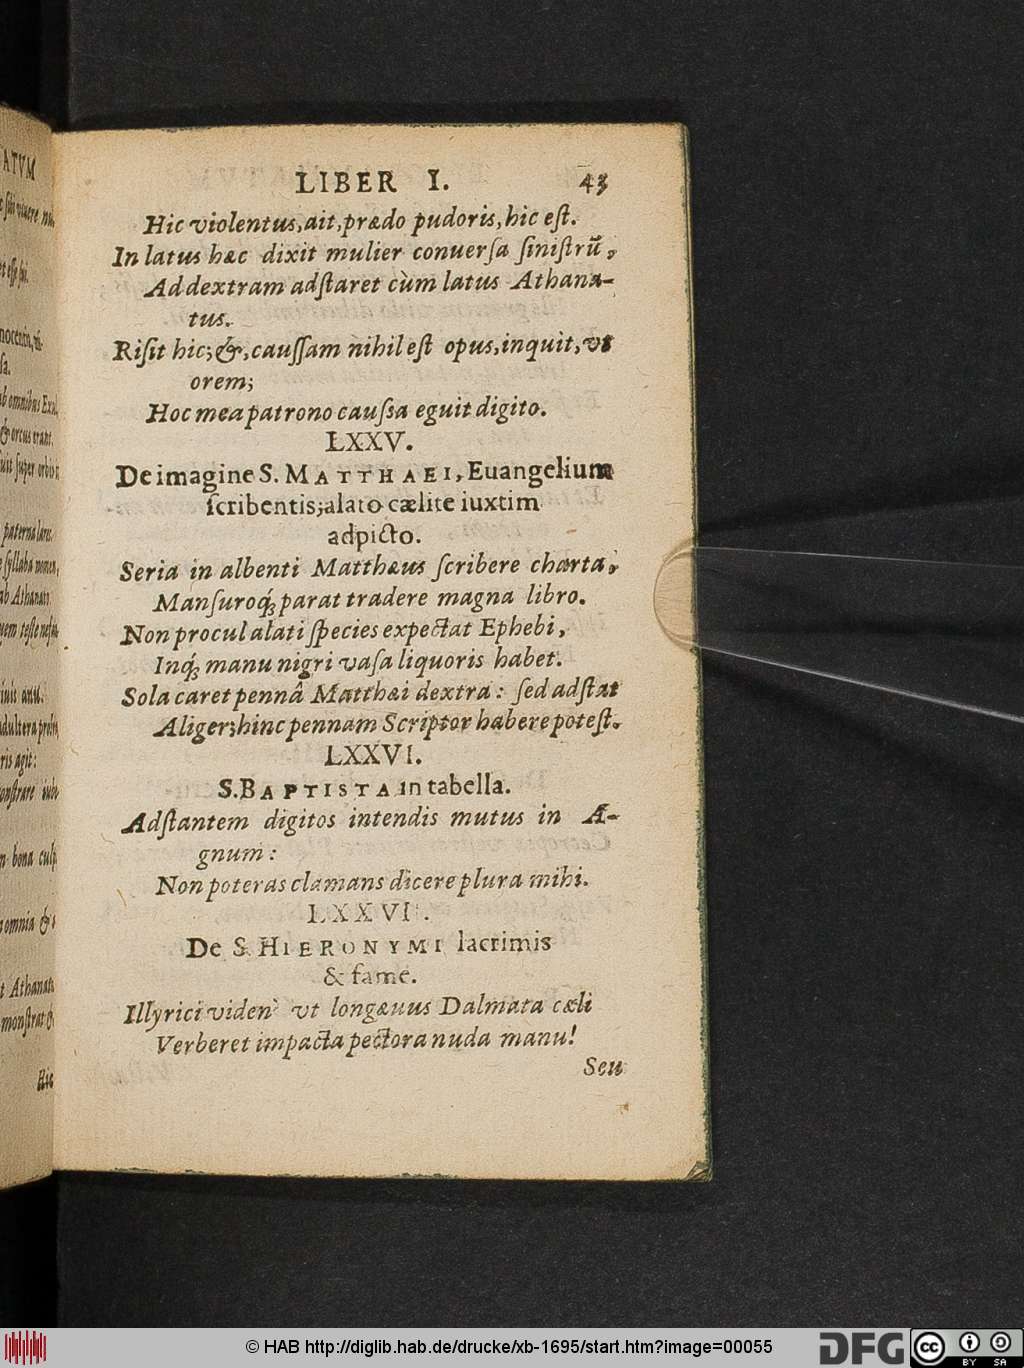 LIBER I. 43
Hic violentus, ait, prædo pudoris, hic eſt.
In latus hæc dixit mulier conuerſa ſiniſtrũ,
Ad dextram adſtaret cùm latus Athana-
tus.
Riſit hic; &, cauſſam nihil eſt opus, inquit, vt
orem;
Hoc mea patrono cauſsa eguit digito.
LXXV.
De imagine S. MATTHAEI, Euangelium
ſcribentis; alato cælite iuxtim
adpicto.
Seria in albenti Matthæus ſcribere charta,
Manſuroq́; parat tradere magna libro.
Non procul alati ſpecies expectat Ephebi,
Inq́; manu nigri vaſa liquoris habet.
Sola caret pennâ Matthæi dextra: ſed adſtat
Aliger; hinc pennam Scriptor habere poteſt.
LXXVI.
S. BAPTISTA in tabella.
Adſtantem digitos intendis mutus in A-
gnum:
Non poteras clamans dicere plura mihi.
LXXVII.
De S. HIERONYMI lacrimis
& fame.
Illyrici viden' vt longæuus Dalmata cæli
Verberet impacta pectora nuda manu!
Seu
ATVM
paterna
ſyllaba
ab Athanati
iuis
ris agit:
bona
omnia &
Athanat
Hic
© HAB http://diglib.hab.de/drucke/xb-1695/start.htm?image=00055
DFG
cc
BY SA